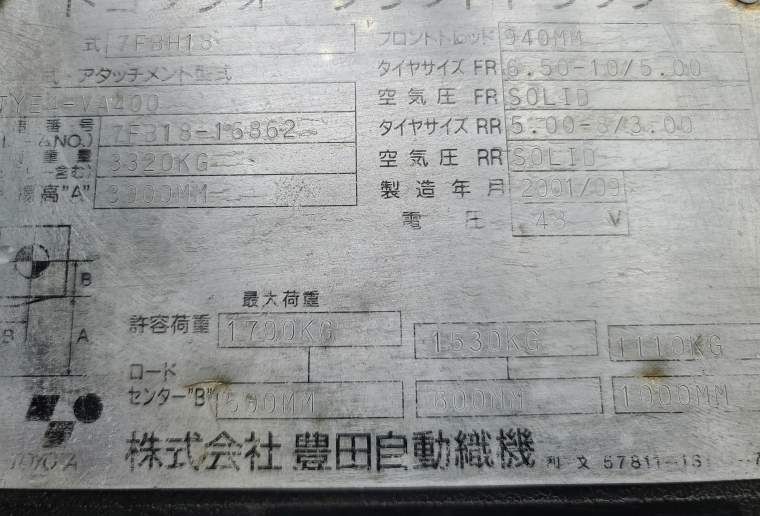 式 7FBH18 フロントトレッド 940MM
式 アタッチメント型式 タイヤサイズ FR 6.50-10/5.00
-VA400 空気圧 FR SOLID
番号 7FB18-15862 タイヤサイズ RR 5.00-8/3.00
NO.)
重量 3320KG 空気圧 RR SOLID
含む)
高"A" 3000MM 製造年月 2001/09
電圧 48 V
B
最大荷重
B A 許容荷重 1700KG 1530KG 1110KG
ロード
センター"B" 500MM 600MM 1000MM
TOYOTA 株式会社 豊田自動織機 文 57811-